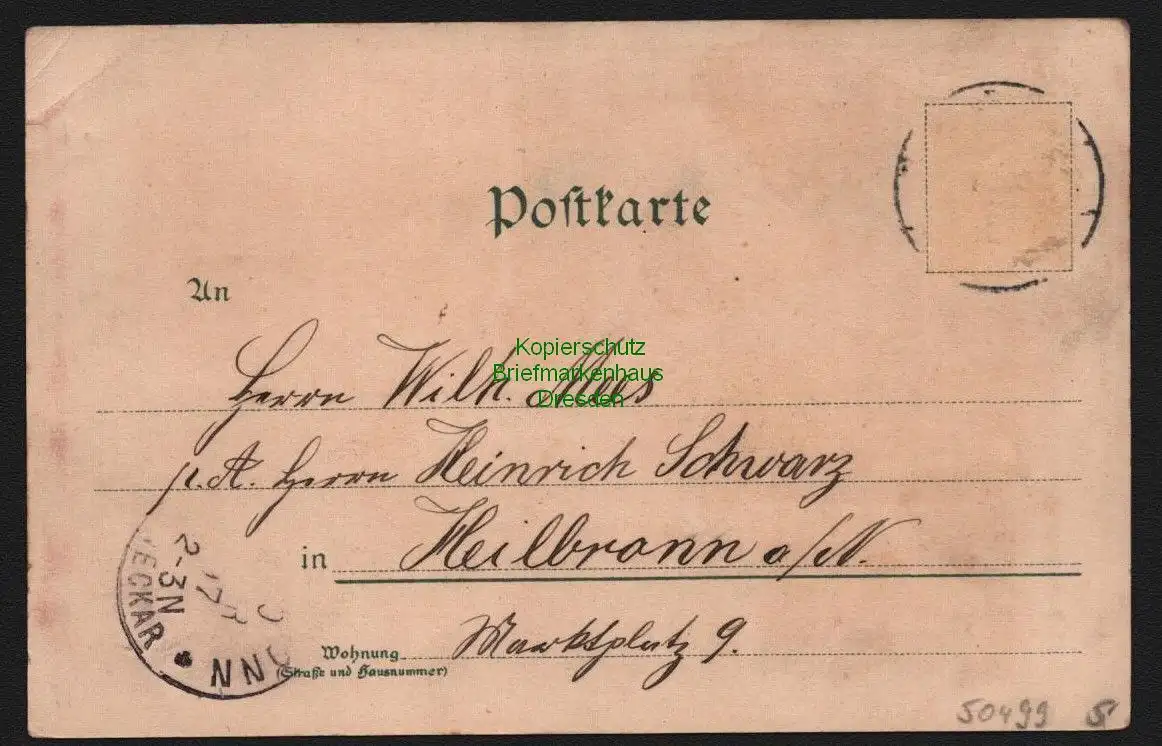 Postkarte
An
Kopierschutz
Briefmarkenhaus
Dresden
Herrn Wilh.
p. A. Herrn Heinrich Schwarz
in Heilbronn a/N.
Wohnung Marktplatz 9.
(Straße und Hausnummer)
NECKAR
2-3N
17
NN
50499